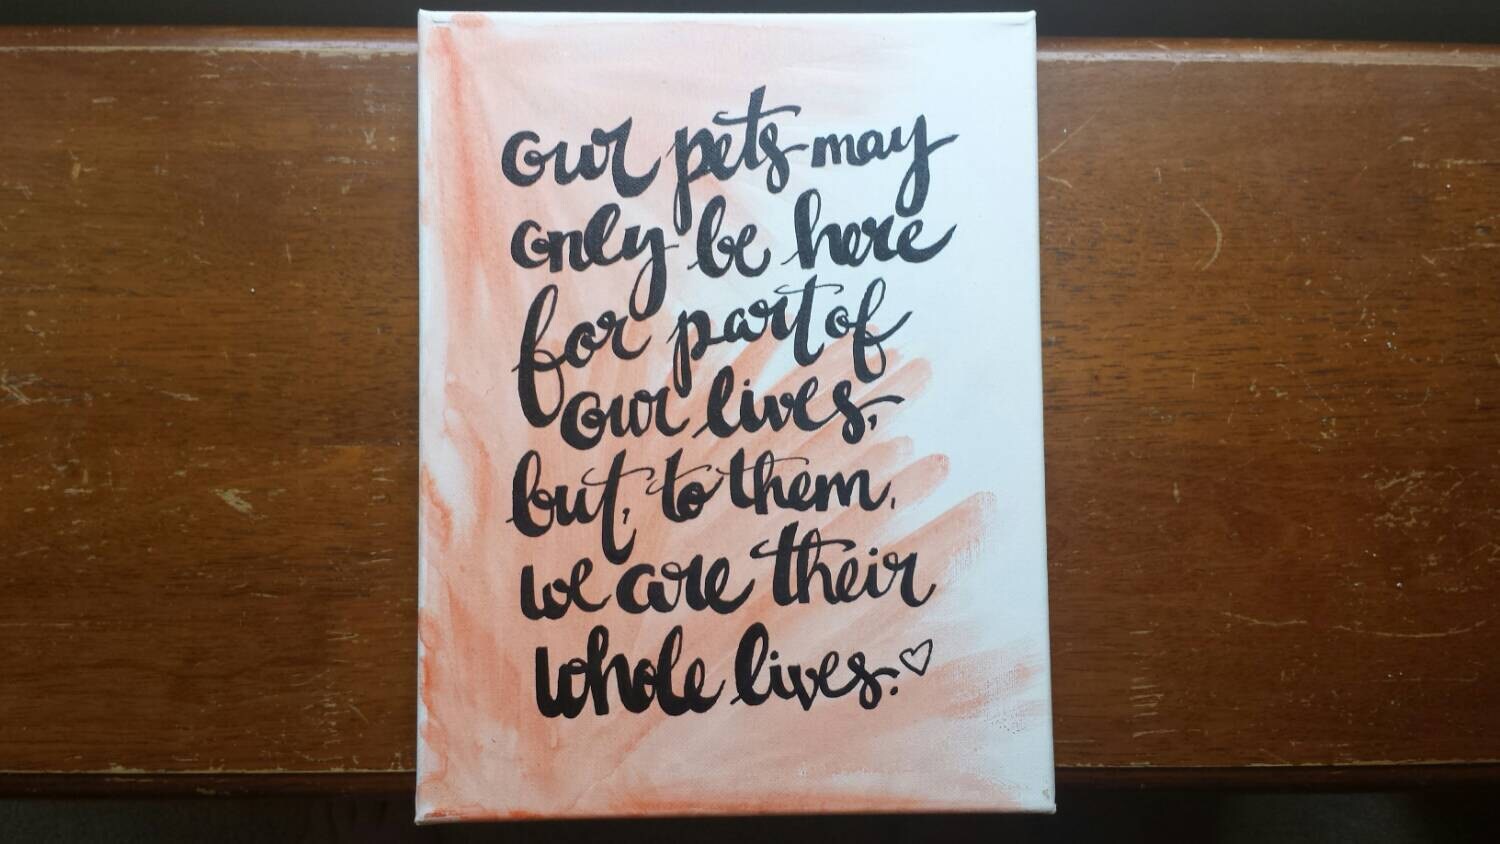 our pets may
only be here
for part of
our lives,
but, to them,
we are their
whole lives.♡